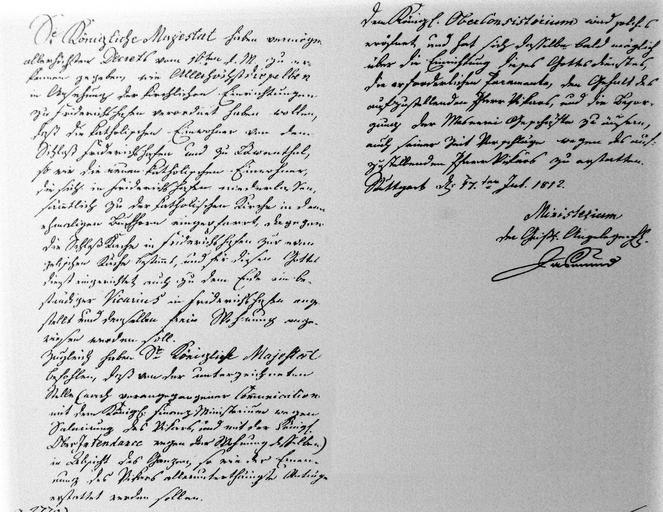 Se Königliche Majestät haben vermöge
allerhöchsten Decrets vom 16ten d. M. zu er-
kennen gegeben, wie Allerhöchstdieselben
in Ansehung der kirchlichen Einrichtungen
zu Friedrichshafen verordnet haben wollen,
daß die katholischen Einwohner von dem
Schloß Friedrichshafen und zu Löwenthal,
so wie die neuen katholischen Einwohner,
die sich in Friedrichshafen niederlassen,
sämmtlich zu der katholischen Kirche in dem
ehmaligen Buchhorn eingepfarrt, dagegen
die SchloßKirche in Friedrichshafen zur evan-
gelischen Kirche bestimmt, und für diesen Gottes
dienst eingerichtet auch zu dem Ende ein be-
ständiger Vicarius in Friedrichshafen ange-
stellt und demselben freie Wohnung ange-
wiesen werden soll.
Zugleich haben Se Königliche Majestät
befohlen, daß von der unterzeichneten
Stelle (nach vorangegangener Communication
mit dem Königl. Finanz Ministerium wegen
Salarirung des Vikars, und mit der Königl.
OberIntendance wegen der Wohnung desselben)
in Absicht des Ganzen, so wie der Ernen-
nung des Vikars allerunterthänigste Anträge
erstattet werden sollen.
dem Königl. Oberconsistorium wird solches
eröfnet, und hat sich dasselbe bald möglichst
über die Einrichtung dieses Gottesdienstes,
die erforderlichen Paramente, den Gehalt des
aufzustellenden Pfarr Vikars, und die Besor-
gung der Geschäfte zu äußern,
auch seiner Zeit Vorschläge wegen des auf-
zustellenden Pfarr Vikars zu erstatten.
Stuttgart d. 17. ten Jul. 1812.
Ministerium
der Geistl. Angelegenhtn.
Jasmund